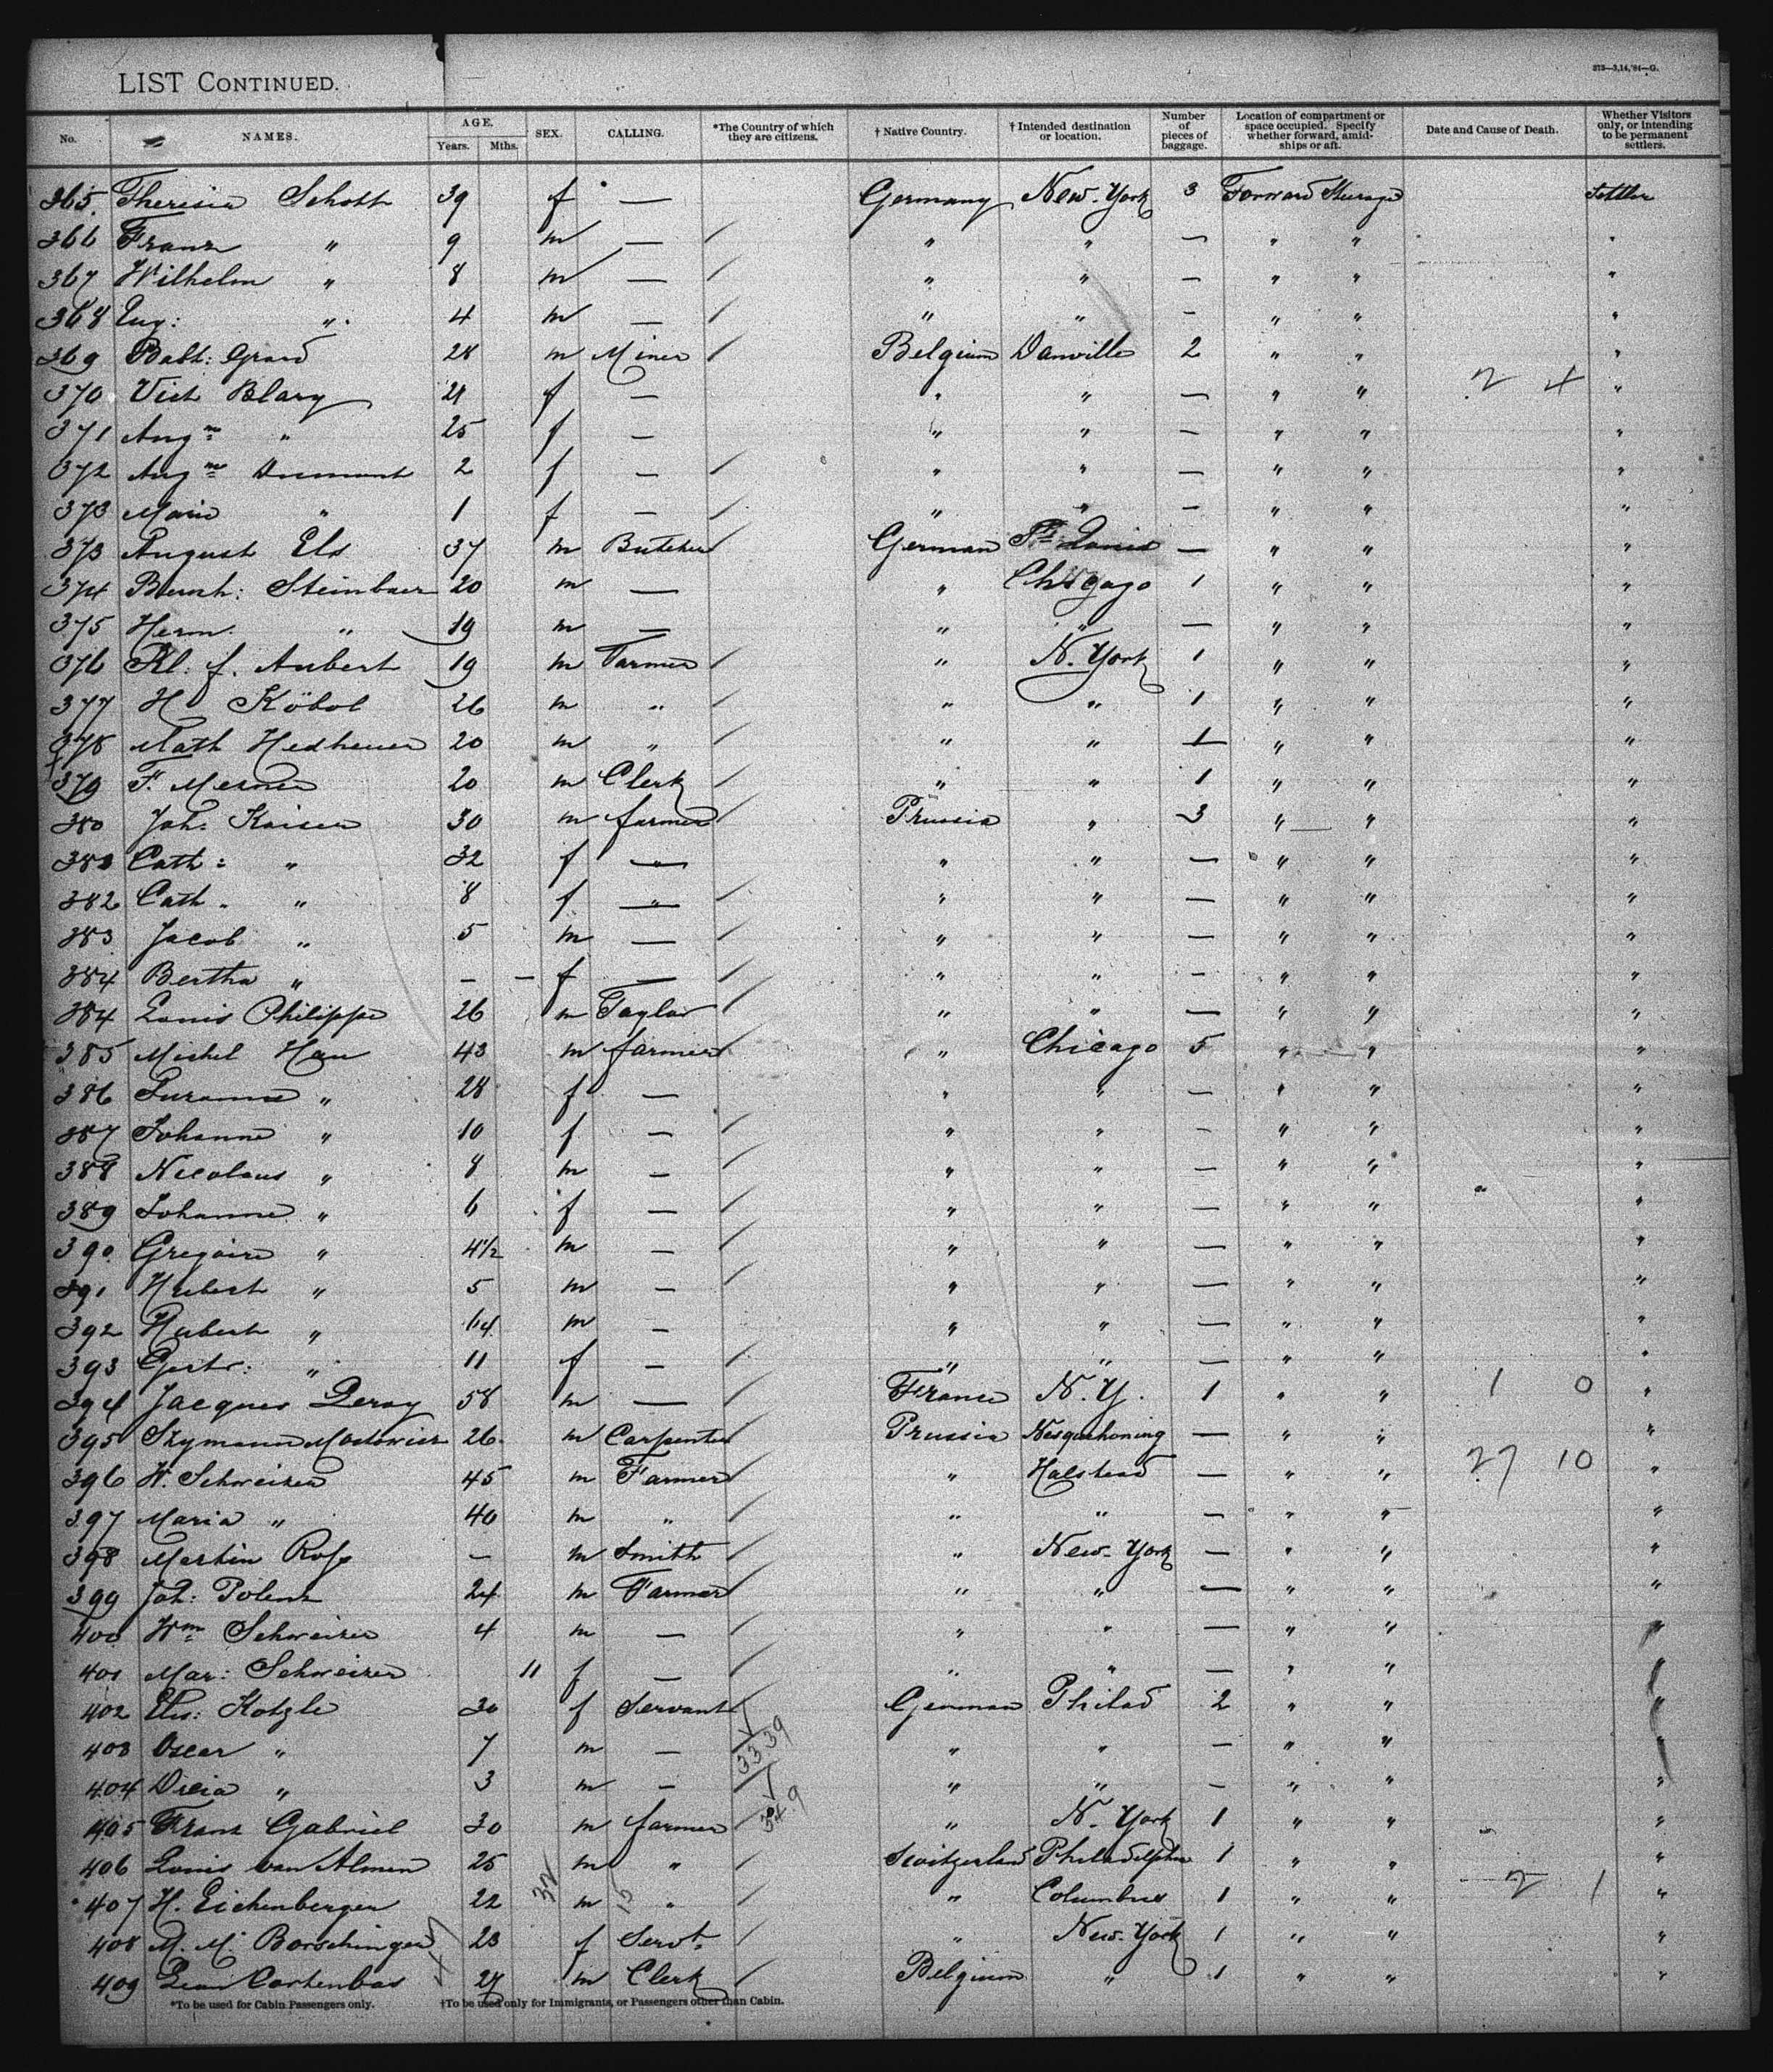 LIST CONTINUED.
373—3,14,'84—G.
No. NAMES. AGE. Years. Mths. SEX. CALLING. *The Country of which they are citizens. † Native Country. † Intended destination or location. Number of pieces of baggage. Location of compartment or space occupied. Specify whether forward, amidships or aft. Date and Cause of Death. Whether Visitors only, or intending to be permanent settlers.
365 Theresia Schott 39 f — Germany New-York 3 Forward Steerage Settler
366 Franz " 9 m — " " — " " "
367 Wilhelm " 8 m — " " — " " "
368 Eug: " 4 m — " " — " " "
369 Babt: Grard 28 m Miner Belgium Danville 2 " " "
370 Vict Blary 21 f — " " — " " 2 4 "
371 Augne " 25 f — " " — " " "
372 Augne Dumont 2 f — " " — " " "
373 Marie " 1 f — " " — " " "
373 August Els 37 m Butcher German St Louis — " " "
374 Bernh: Steinbaer 20 m — " Chicago 1 " " "
375 Herm. " 19 m — " " — " " "
376 Kl. f. Aubert 19 m Farmer " N. York 1 " " "
377 H Köbol 26 m " " " 1 " " "
378 Math Hedheuer 20 m " " " 1 " " "
379 F. Mesner 20 m Clerk " " 1 " " "
380 Joh: Kaiser 30 m farmer Prussia " 3 " " "
381 Cath: " 32 f — " " — " " "
382 Cath. " 8 f — " " — " " "
383 Jacob " 5 m — " " — " " "
384 Bertha " – – f — " " — " " "
384 Louis Philippe 26 m Taylor " " — " " "
385 Michel Hau 43 m farmer " Chicago 5 " " "
386 Suzanne " 28 f — " " — " " "
387 Johanne " 10 f — " " — " " "
388 Nicolaus " 8 m — " " — " " "
389 Johanne " 6 f — " " — " " "
390 Gregoire " 4½ m — " " — " " "
391 Hubert " 5 m — " " — " " "
392 Hubert " 64 m — " " — " " "
393 Gertr: " 11 f — " " — " " "
394 Jacques Leroy 58 m — France N.Y. 1 " " 1 0 "
395 Szymann Mostowicz 26 m Carpenter Prussia Nesquehoning — " " "
396 W. Schweizer 45 m Farmer " Halstead — " " 27 10 "
397 Maria " 40 m " " " — " " "
398 Martin Ross — m Smith " New-York — " " "
399 Joh: Polenz 24 m Farmer " " — " " "
400 Wm Schweizer 4 m — " " — " " "
401 Mar: Schweizer 11 f — " " — " " "
402 Elis: Kotzle 30 f Servant German Philad 2 " " "
403 Oscar " 7 m — " " — " " "
404 " 3 m — " " — " " "
405 Franz Gabriel 30 m farmer " N. York 1 " " "
406 Louis van Almen 25 m " Switzerland Philadelphia 1 " " "
407 H. Eichenberger 22 m " " Columbus 1 " " 2 1 "
408 M. M. Borschinger 23 f Servt. " New-York 1 " " "
409 Leon Cartenbas 27 m Clerk Belgium " 1 " " "
*To be used for Cabin Passengers only. †To be used only for Immigrants, or Passengers other than Cabin.